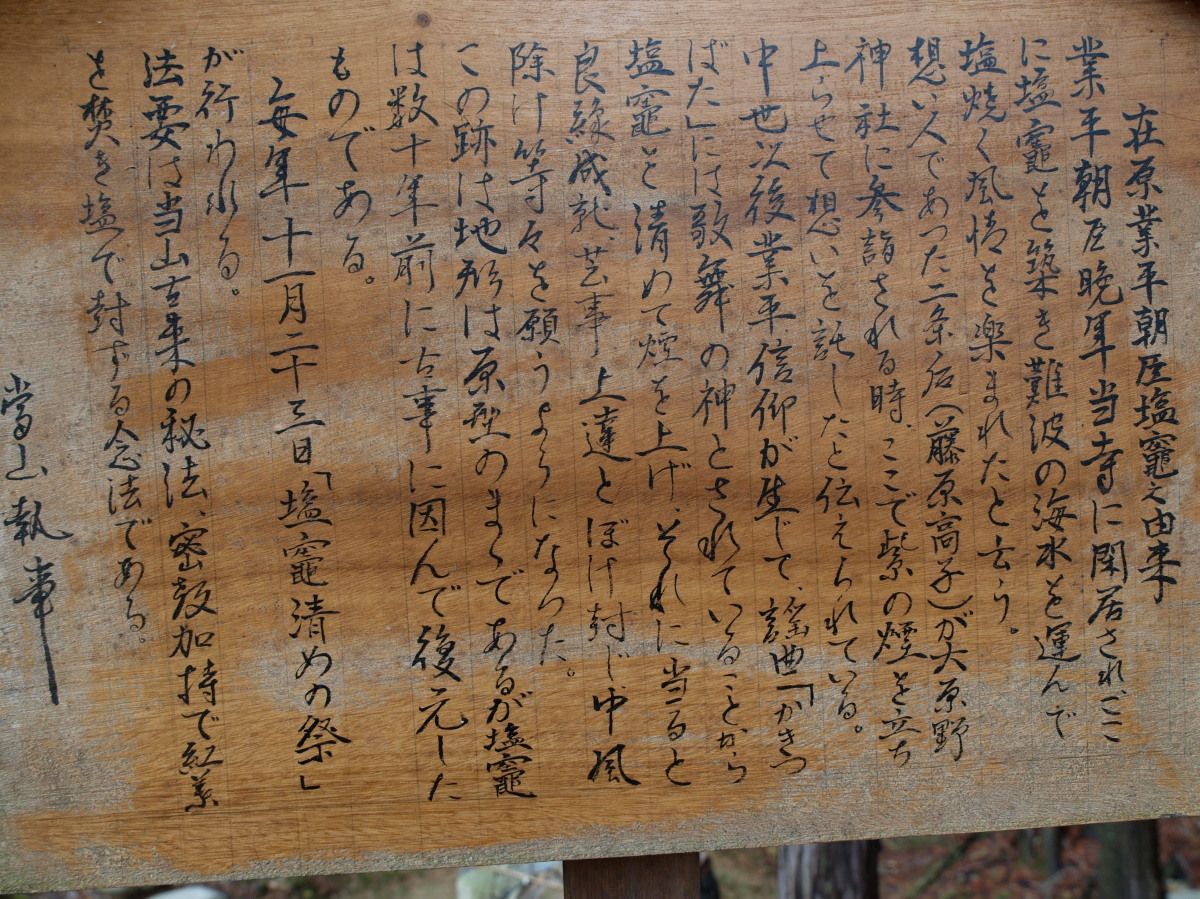 在原業平朝臣塩竈之由来
業平朝臣晩年当寺に閑居されここ
に塩竈を築き難波の海水を運んで
塩焼く風情を楽まれたと云う。
想い人であった二条后(藤原高子)が大原野
神社に参詣される時、ここで紫の煙を立ち
上らせて想いを託したと伝えられている。
中世以後業平信仰が生じて、謡曲「かきつ
ばた」には歌舞の神とされていることから
塩竈を清めて煙を上げ、それに当ると
良縁成就、芸事上達とぼけ封じ、中風
除け等々を願うようになった。
この跡は地形は原型のまゝであるが塩竈
は数十年前に古事に因んで復元した
ものである。
毎年十一月二十三日「塩竈清めの祭」
が行われる。
法要は当山古来の秘法、密教加持で紅葉
を焚き塩で封ずる念法である。
當山執事